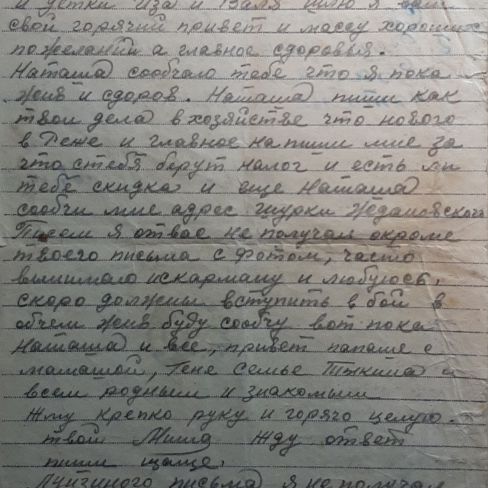 и детки Иза и Валя шлю я вам
свой горячий привет и массу хороших
пожеланий а главное здоровья.
Наташа сообчаю тебе что я пока
жив и сдоров. Наташа пиши как
твои дела в хозяйстве что нового
в Рене и главное напиши мне за
что с тебя берут налог и есть ли
тебе скидка и еще Наташа
сообчи мне адрес Шурки
Писем я от вас не получал окроме
твоего письма с фотом, часто
вынимаю ис карману и любуюсь,
скоро должны вступить в бой в
обчем жив буду сообчу вот пока
Наташа и все, привет папаше с
мамашой, Гене Семье и
всем родным и знакомым
Жму крепко руку и горячо целую.
твой Миша жду ответ
пиши щаще.
письма я не получал